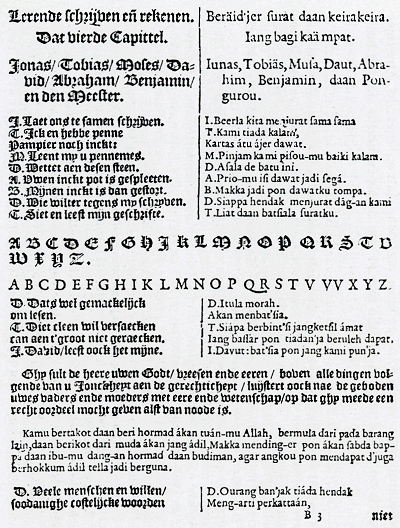 Lerende schrijven eñ rekenen.
Dat vierde Capittel.
Jonas/ Tobias/ Moses/ Da-
vid/ Abraham/ Benjamin/
en den Meester.
J. Laet ons te samen schrijven.
T. Ick en hebbe penne
Pampier noch inckt:
M. Leent my u pennemes.
D. Wettet aen desen steen.
A. Uwen inckt pot is gespleeten.
B. Mijnen inckt is dan gestort.
D. Wie wilter tegens my schryben.
T. Siet en leest mijn geschrifte.
Beräid'jer surat daan keirakeira.
Iang bagi kaä mpat.
Iunas, Tobiäs, Musa, Daut, Abra-
him, Benjamin, daan Pon-
gurou.
I. Beerla kita me jurat sama sama
T. Kami tiada kalam,
Kartas átu ájer dawat.
M. Pinjam kami pisou-mu baiki kalam.
D. Asala de batu ini.
A. Prio-mu isi dawat jadi segá.
B. Makka jadi pon dawatku tompa.
D. Siappa hendak menjurat dàg-an kami
T. Liat daan batsiala suratku.
A B C D E F G H J K L M N O P Q R S T U
W X Y Z.
A B C D E F G H I K L M N O P Q R S T V VV X Y Z.
D. Dats wel gemackelijck
om lesen.
T. Die cleen wil versaecken
can aen t'groot niet geraecken.
J. David/ leest oock het mijne.
D. Itula morah.
Akan menbat'sia.
T. Siàpa berbint'si jangketsil ámat
Iang bassar pon tiadan'ja beruleh dapat.
I. Davut: bat'sia pon jang kami pun'ja.
Ghy sult de heere uwen Godt/ vreesen ende eeren / boven alle dingen vol-
gende van u Jonckheyt aen de gerechticheyt / luijstert oock nae de geboden
uwes vaders ende moeders met eere ende wetenschap/ op dat ghy meede een
recht oordeel mocht geven alst van noode is.
Kamu bertakot daan beri hormad ákan tuán-mu Allah, bermula dari pada barang
lain, daan berikot dari muda ákan jang ádil, Makka mending-er pon ákan sabda bap-
pa daan ibu-mu dang-an hormad daan budiman, agar angkou pon mendapat d'juga
berhokkum ádil tella jadi berguna.
D. Veele menschen en willen/
soodanighe costelijcke woorden
D. Ourang ban'jak tiáda hendak
Meng-arti perkattaán,
B 3 niet